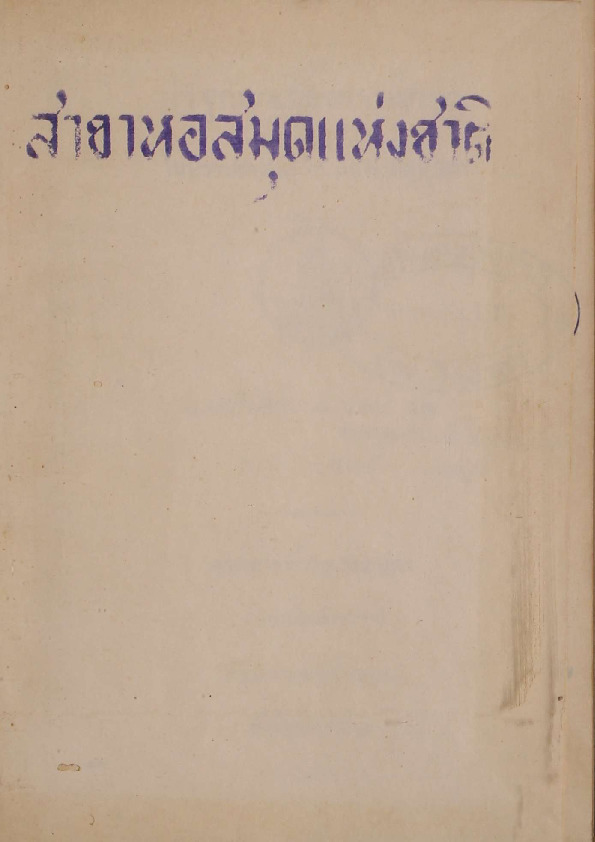 สาขาหอสมุดแห่งชาติ